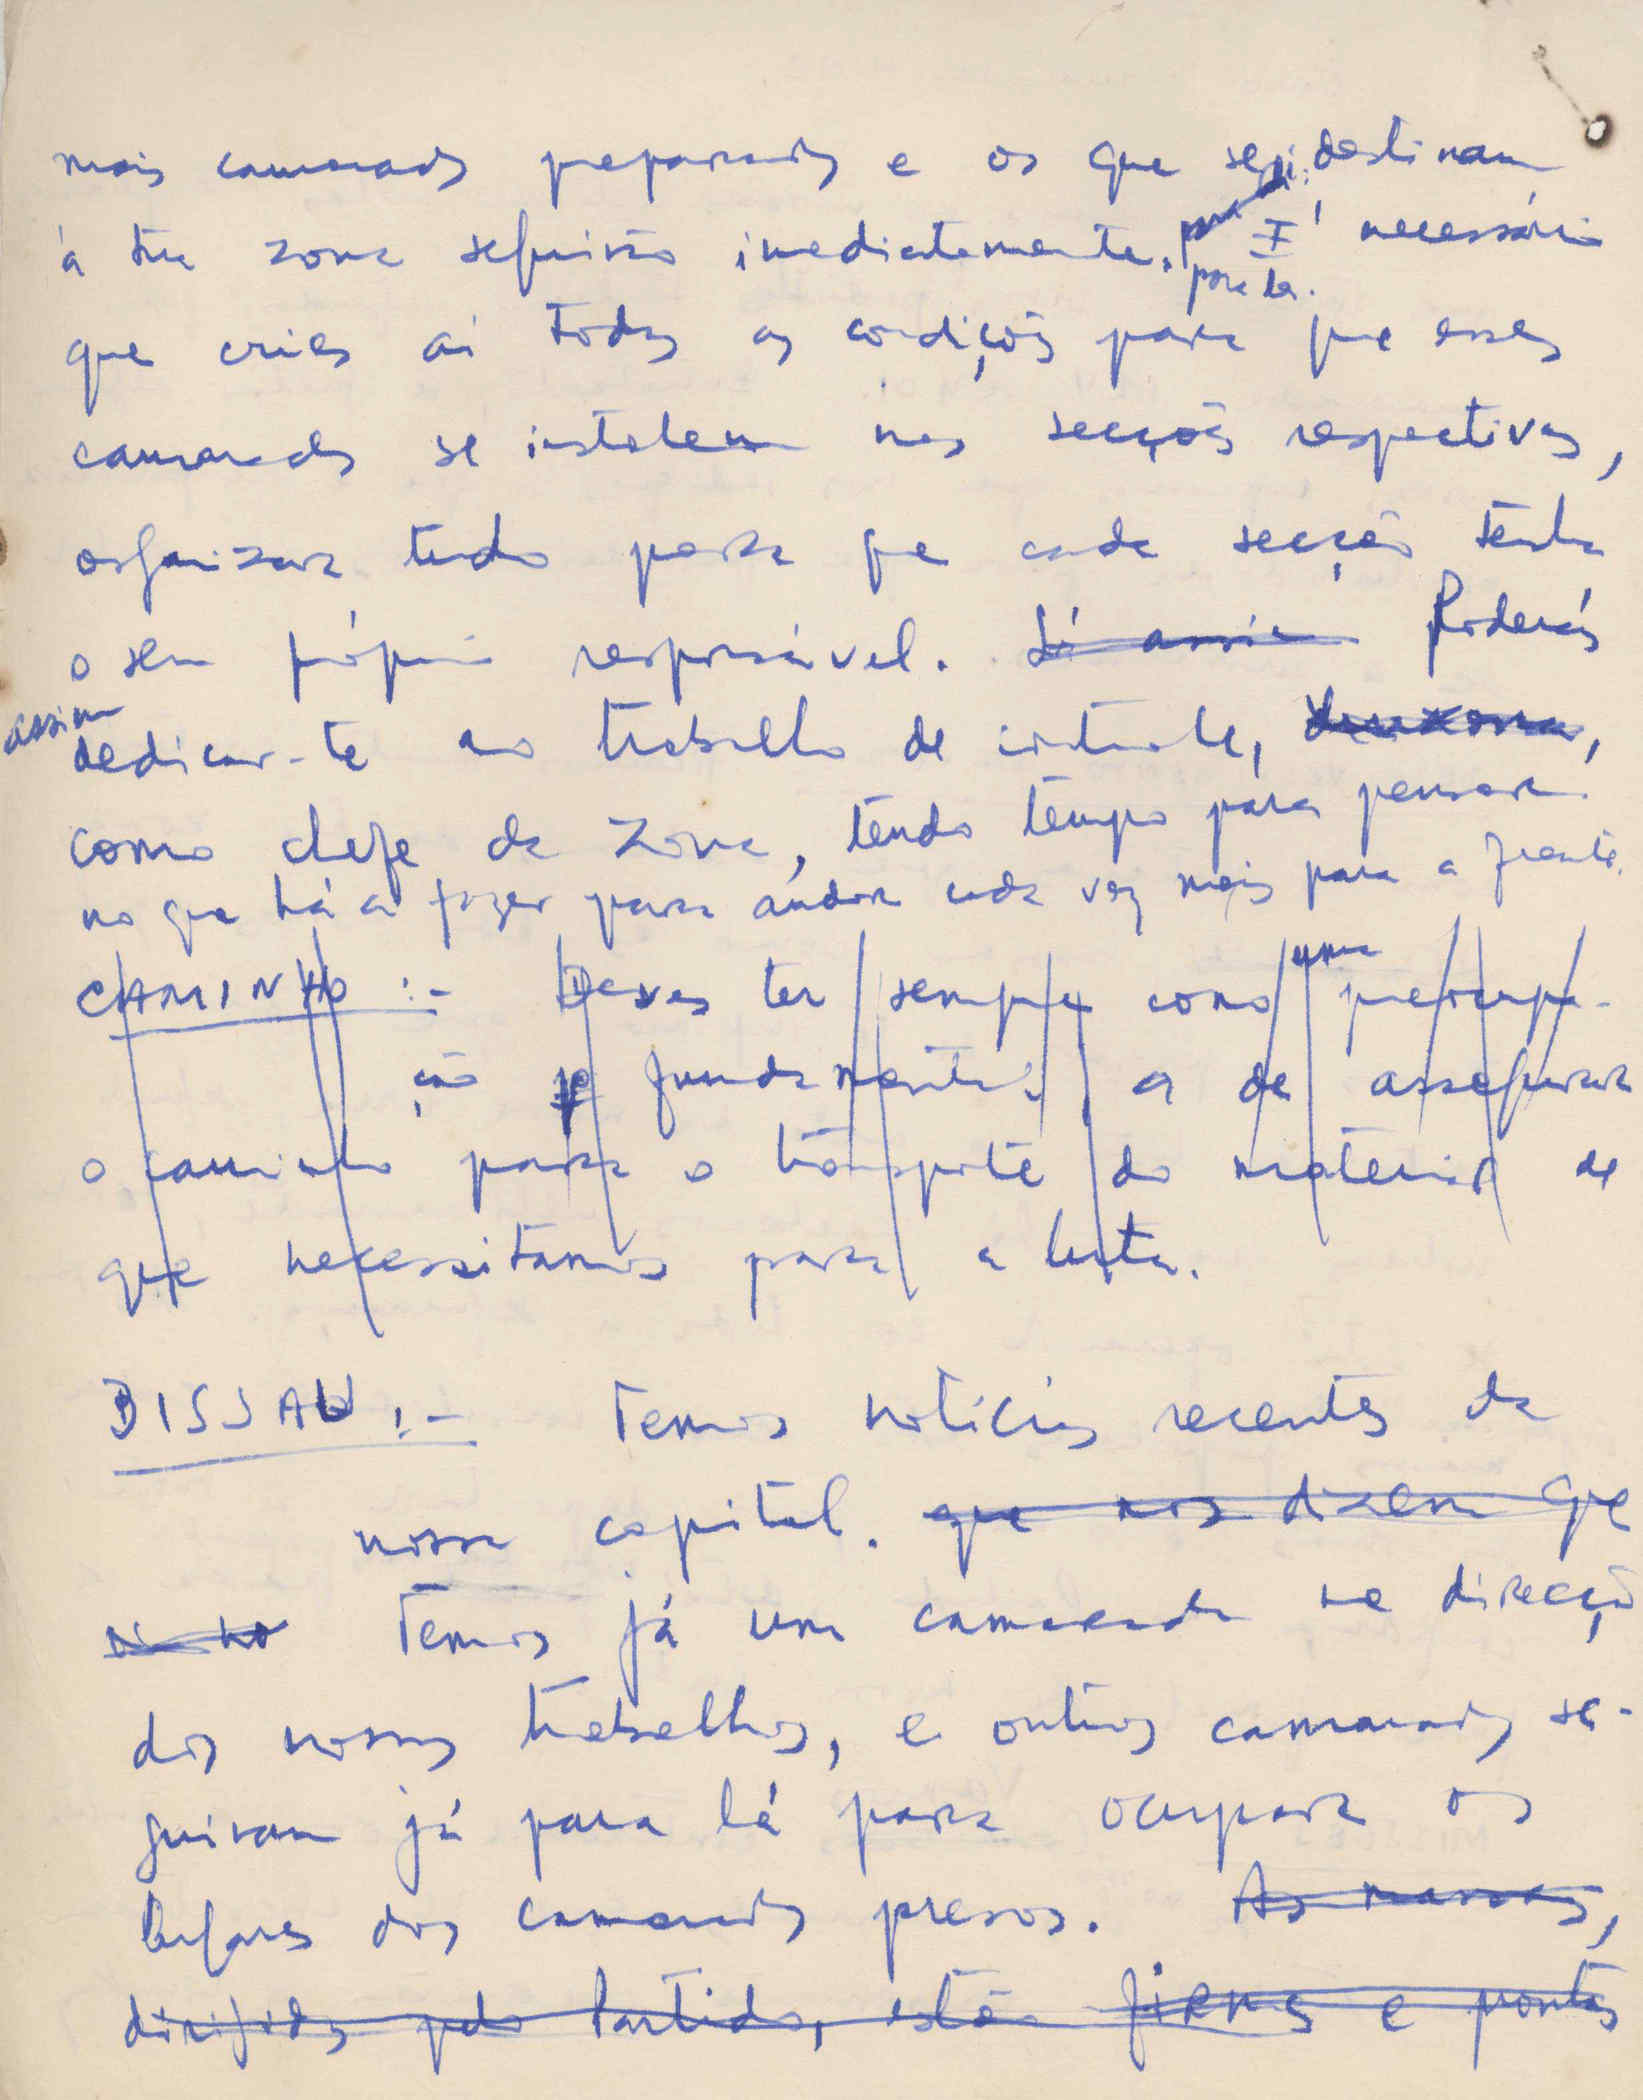 mais camaradas preparados e os que se destinam
à tua zona seguirão imediatamente. É necessário
para lá.
que cries aí todas as condições para que esses
camaradas se instalem nas secções respectivas,
organizar tudo para que cada secção tenha
o seu próprio responsável. Só assim Poderás
assim
dedicar-te ao trabalho de controle,
como chefe da zona, tendo tempo para pensar
no que há a fazer para andar cada vez mais para a frente.
CAMINHO :- Deves ter sempre como uma preocupa-
ção fundamental a de assegurar
o caminho para o transporte do material de
que necessitamos para a luta.
BISSAU :- Temos notícias recentes da
nossa capital. que nos dizem que
Temos já um camarada na direcção
dos nossos trabalhos, e outros camaradas se-
guiram já para lá para ocupar os
lugares dos camaradas presos. As massas,
dirigidas pelo Partido, estão firmes e prontas